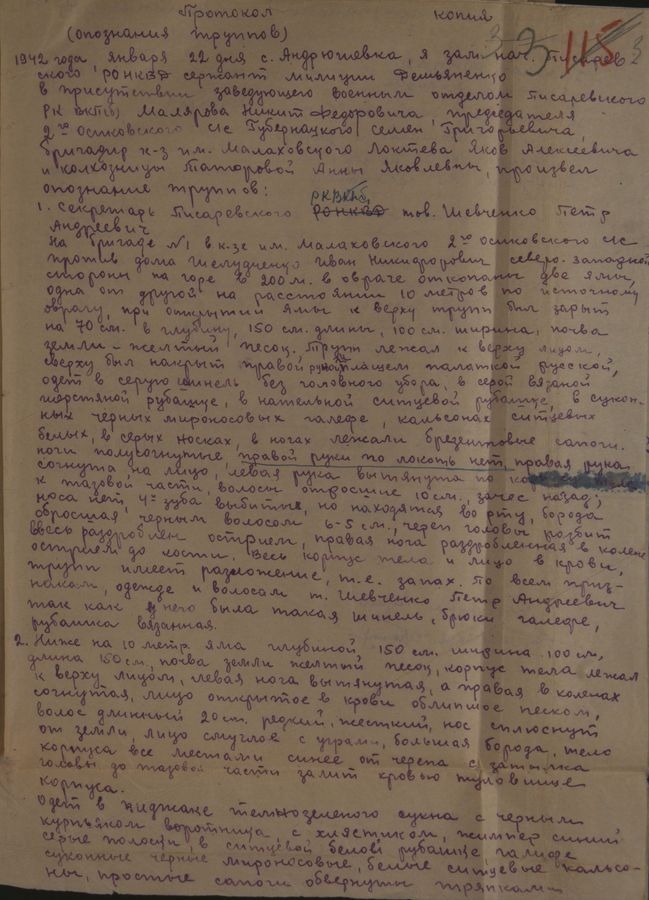 Протокол копия
(опознания труппов) 3 115 3
1942 года января 22 дня с. Андрюшевка, я зам. нач. Писарев
ского РОНКВД сержант милиции Демьяненко
в присутствии заведующего военным отделом Писаревского
РК ВКП(б) Малярова Никит Федоровича, председателя
2го Осиковского с/с Губернацкого Семен Григорьевича,
бригадир к-з им. Малаховского Локтева Яков Алексеевича
и колхозницы Татаровой Анны Яковлевны, произвел
опознание труппов:
РКВКПб,
1. Секретарь Писаревского РОНКВД тов. Шевченко Петр
Андреевич
На бригаде №1 в к-зе им. Малаховского 2го Осиковского с/с
против дома Шелудченко Иван Никифорович северо-западной
стороны на горе в 200 м. в овраге откопаны две ямы,
одна от другой на расстоянии 10 метров по источному
оврагу, при открытии ямы к верху трупп был зарыт
на 70 см. в глубину, 150 см. длины, 100 см. ширина, почва
земли - желтый песок. Трупп лежал к верху лицом,
сверху был накрыт правой рукой плащем палаткой русской,
одет в серую шинель без головного убора, в серой вязаной
шорстяной рубашке, в нательной ситцевой рубашке, в сукон-
ных черных мироносовых галефе, кальсонах ситцевых
белых, в серых носках, в ногах лежали брезентовые сапоги.
ноги полусогнутые правой руки по локоть нет, правая рука
согнута на лицо, левая рука вытянута по
к тазовой части, волосы отросшие 10 см., зачес назад;
носа нет, 4е зуба выбитые, но находятся во рту, борода
обросшая черным волосом 6-5 см., череп головы разбит
ввесь раздроблен острием, правая нога раздробленная в колене
острием до кости. Весь корпус тела и лицо в крови,
трупп имеет разложение, т.е. запах. По всем приз-
накам, одежде и волосам т. Шевченко Петр Андреевич
так как у него была такая шинель, брюки галефе,
рубашка вязанная.
2. Ниже на 10 метр. яма глубиной 150 см. ширина 100 см,
длина 150 см, почва земли желтый песок, корпус тела лежал
к верху лицом, левая нога вытянутая, а правая в коленах
согнутая, лицо открытое в крови облитое песком,
волос длинный 20 см. редкий, жесткий, нос сплюснут
от земли, лицо смуглое с уграми, большая борода, тело
корпуса все местами синее от черепа с затылка
головы до тазовой части залит кровью туловище
корпуса.
Одет в пиджаке темнозеленого сукна с черным
курпьяком воротница, с хлястиком, жимпер синий
серые полоски, в ситцевой белой рубашке, галифе
суконные черные мироносовые, белые ситцевые кальсо-
ны, простые сапоги обвернуты тряпками